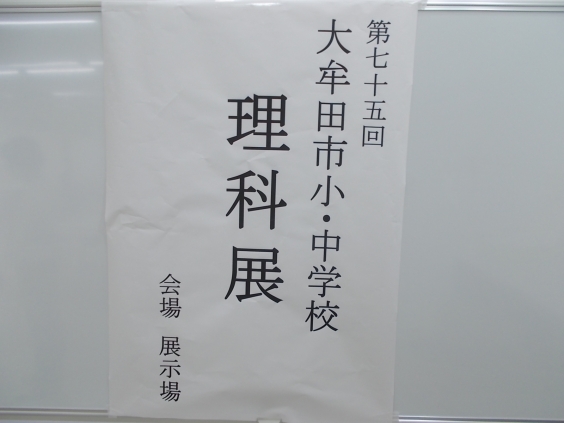 第七十五回
大牟田市小・中学校
理科展
会場 展示場